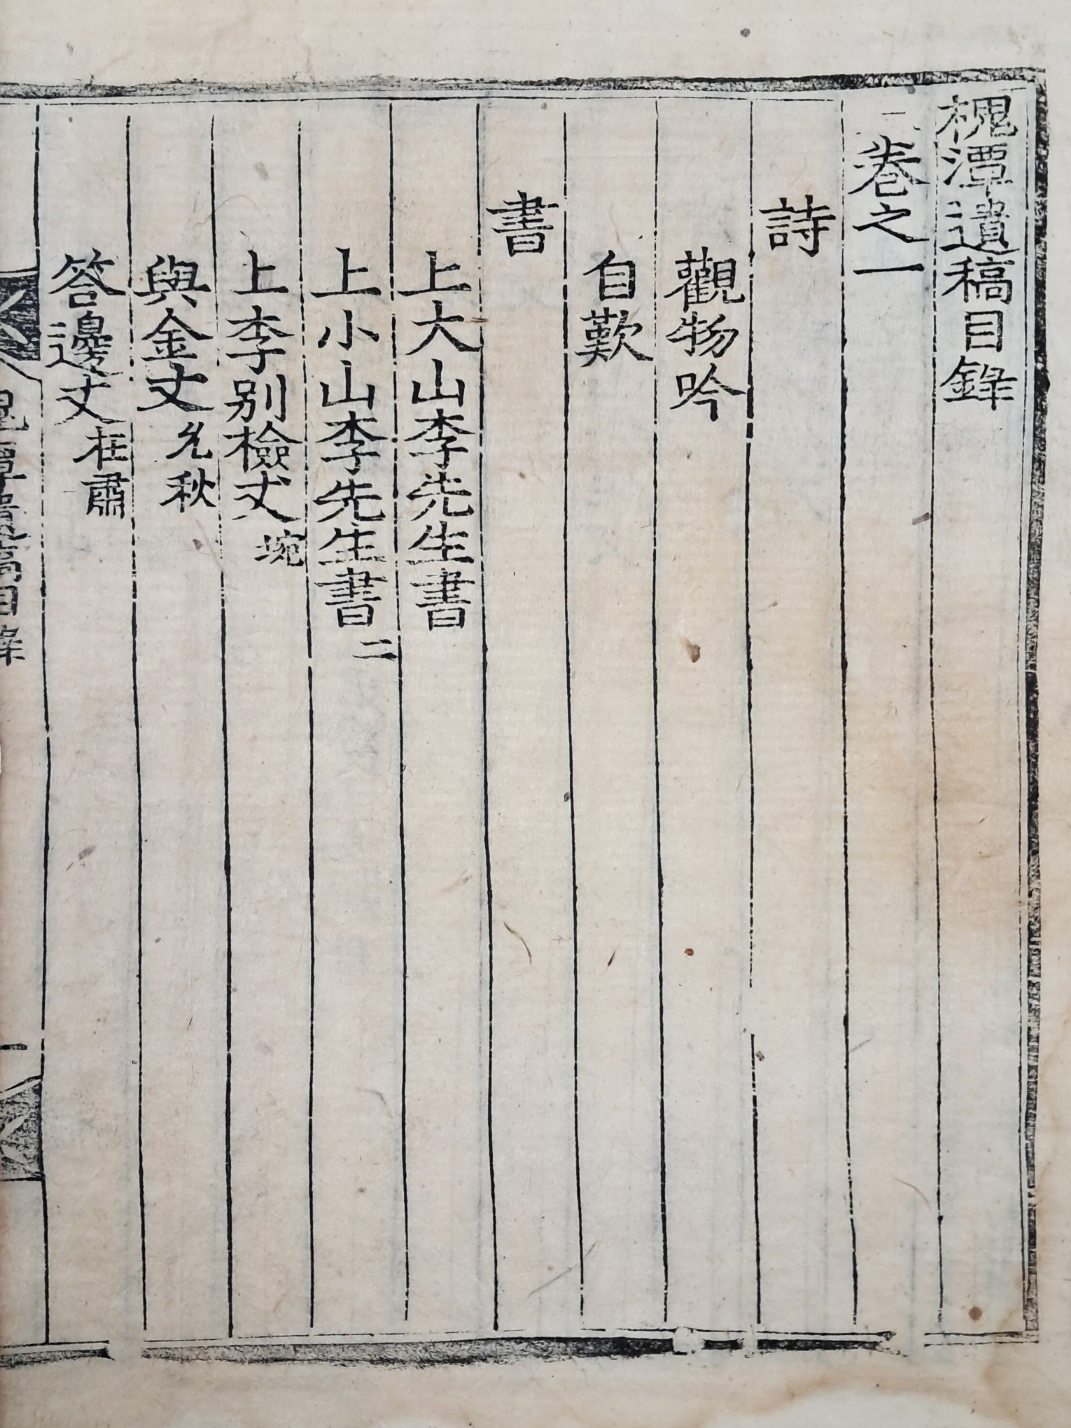 槐潭遺稿目錄
卷之一
詩
觀物吟
自歎
書
上大山李先生書
上小山李先生書 二
上李別檢丈 埦
與金丈 㕙秋
答邊丈 在肅
槐潭遺稿目錄 一